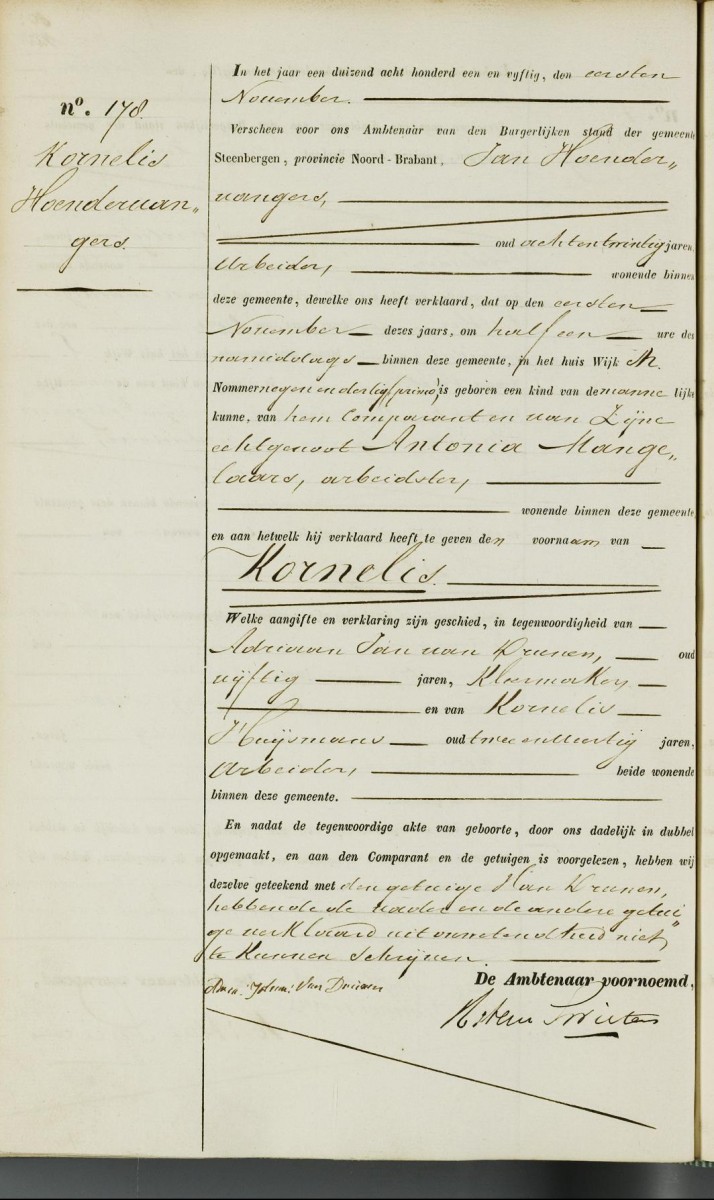 nº. 178.
Kornelis
Hoendervan„
gers.
In het jaar een duizend acht honderd een en vyftig, den eersten
November.
Verscheen voor ons Ambtenaar van den Burgerlijken stand der gemeente
Steenbergen, provincie Noord-Brabant, Jan Hoender„
vangers,
oud achtentwintig jaren,
Arbeider, wonende binnen
deze gemeente, dewelke ons heeft verklaard, dat op den eersten
November dezes jaars, om half een ure des
namiddags binnen deze gemeente, in het huis Wijk
Nommer negen en dertig (primo) is geboren een kind van de mannelijke
kunne, van hem Comparant en van Zijne
echtgenoot Antonia Mange„
laars, arbeidster,
wonende binnen deze gemeente
en aan hetwelk hij verklaard heeft te geven den voornaam van
Kornelis.
Welke aangifte en verklaring zijn geschied, in tegenwoordigheid van
Adriaan Jan van Drunen, oud
vijftig jaren, Kleermaker,
en van Kornelis
Huijsmans oud twee en veertig jaren,
Arbeider, beide wonende
binnen deze gemeente.
En nadat de tegenwoordige akte van geboorte, door ons dadelijk in dubbel
opgemaakt, en aan den Comparant en de getuigen is voorgelezen, hebben wij
dezelve geteekend met den getuige Van Drunen,
hebbende de vader en de andere getui„
ge verklaard uit onwetendheid niet
te kunnen schrijven.
De Ambtenaar voornoemd,
Van Drunen